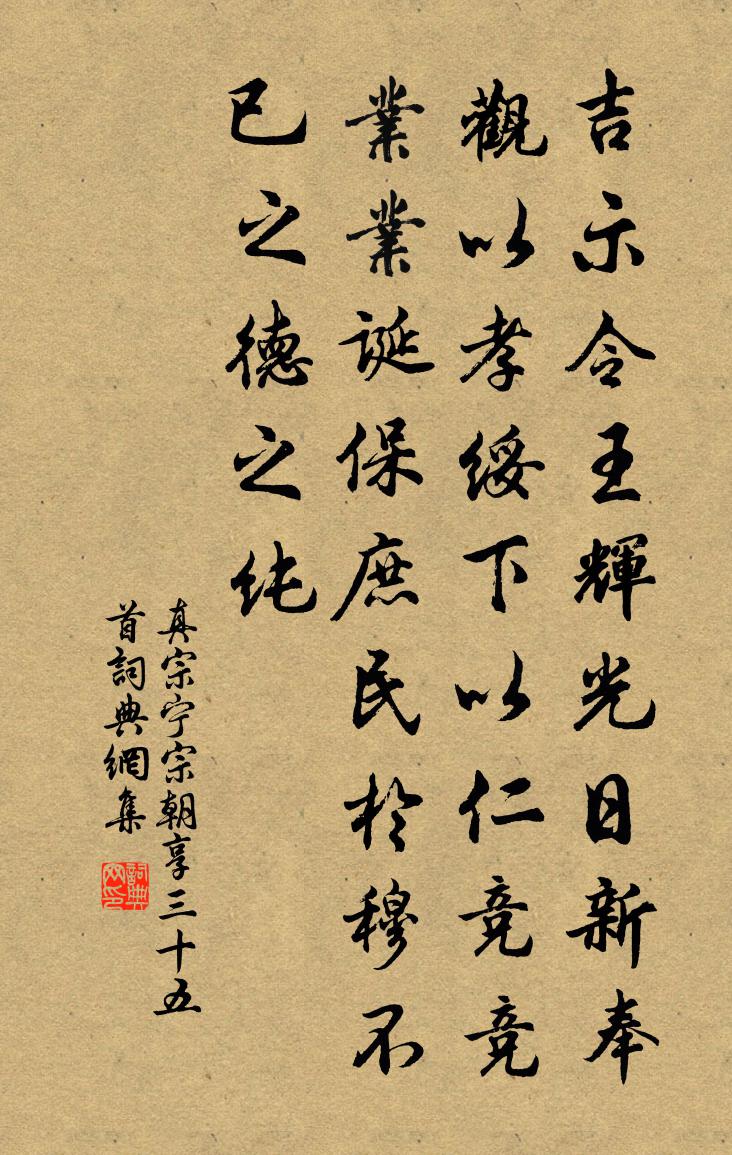 吉示令王輝光日新奉
觀以孝綏下以仁竞竞
業業誕保庶民於穆不
已之德之纯
真宗宁宗朝享三十五
首詞典網集
詞典
网印